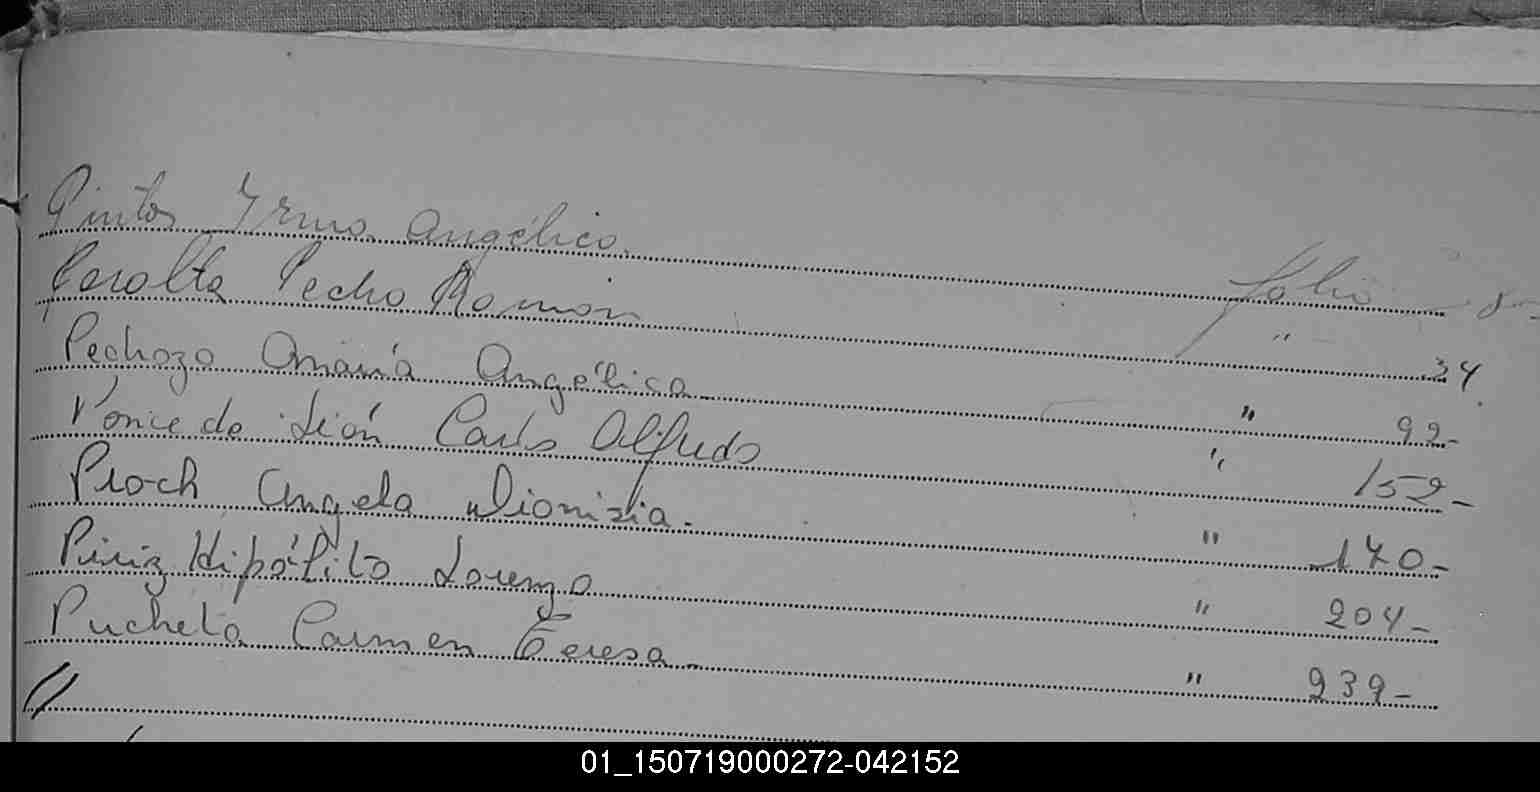 Pintos Yrma Angélica. folio 8-
Peralta Pedro Ramón " 34
Pedrozo María Angélica " 92-
Ponce de León Carlos Alfredo " 152-
Proch Angela Dionisia. " 170-
Piriz Hipólito Lorenzo " 204-
Pucheta Carmen Teresa " 239-
//
01_150719000272-042152